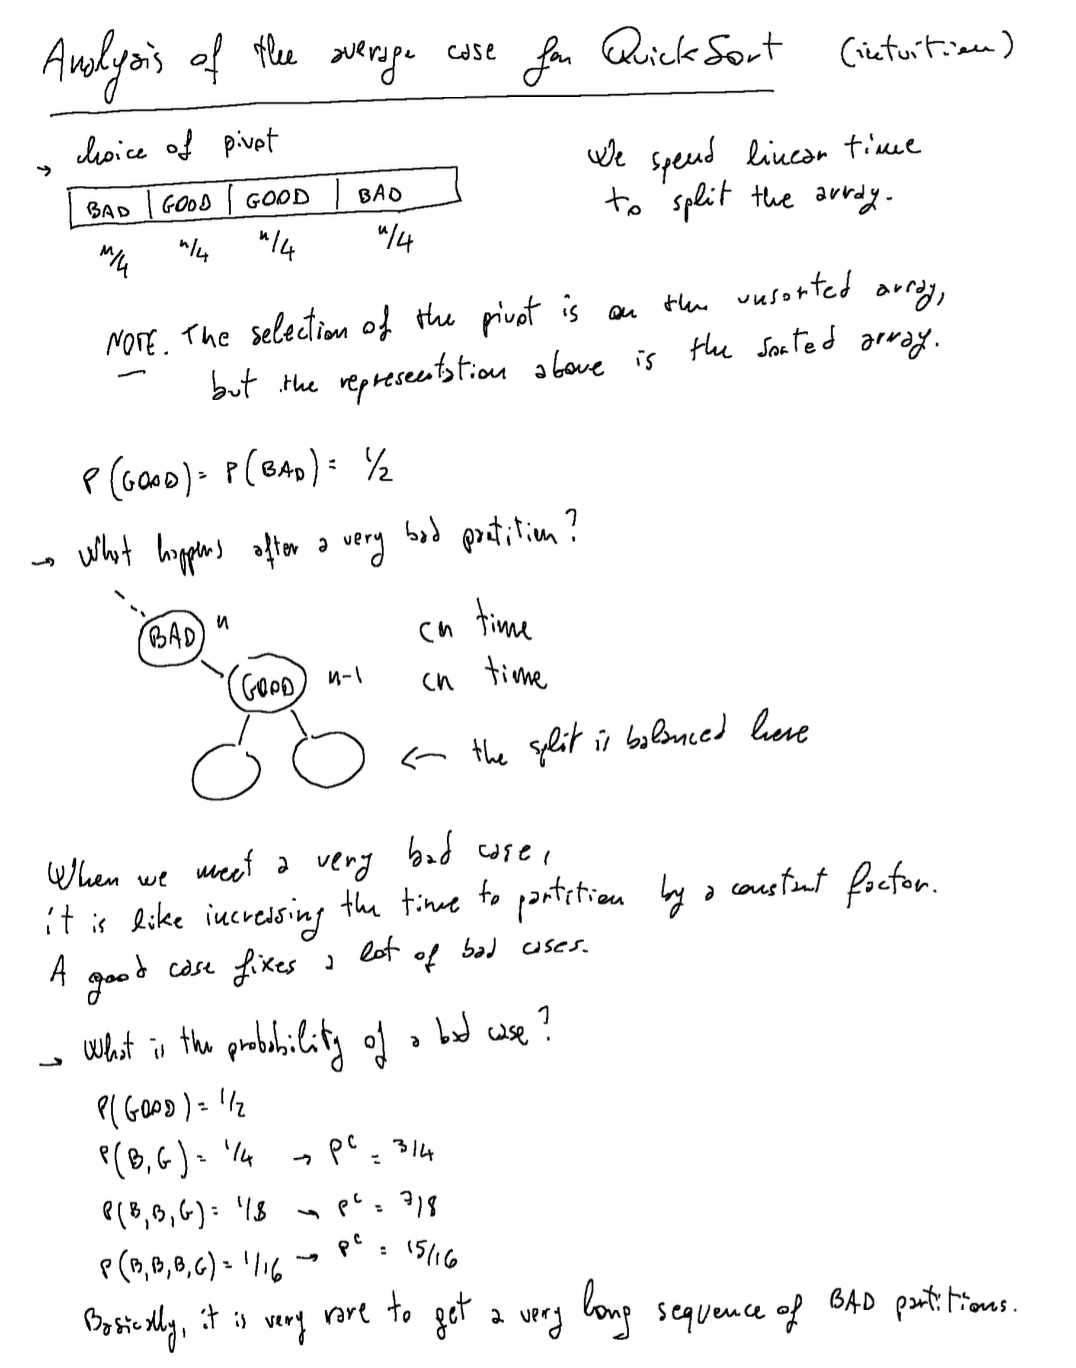 Analysis of the average case for QuickSort (intuition)
→ choice of pivot
We spend linear time
to split the array.
BAD | GOOD | GOOD | BAD
n/4 n/4 n/4 n/4
NOTE. The selection of the pivot is on the unsorted array,
but the representation above is the sorted array.
P(GOOD) = P(BAD) = 1/2
→ What happens after a very bad partition?
BAD n cn time
GOOD n-1 cn time
← the split is balanced here
When we meet a very bad case,
it is like increasing the time to partition by a constant factor.
A good case fixes a lot of bad cases.
→ What is the probability of a bad case?
P(GOOD) = 1/2
P(B,G) = 1/4 → P^c = 3/4
P(B,B,G) = 1/8 → P^c = 7/8
P(B,B,B,G) = 1/16 → P^c = 15/16
Basically, it is very rare to get a very long sequence of BAD partitions.